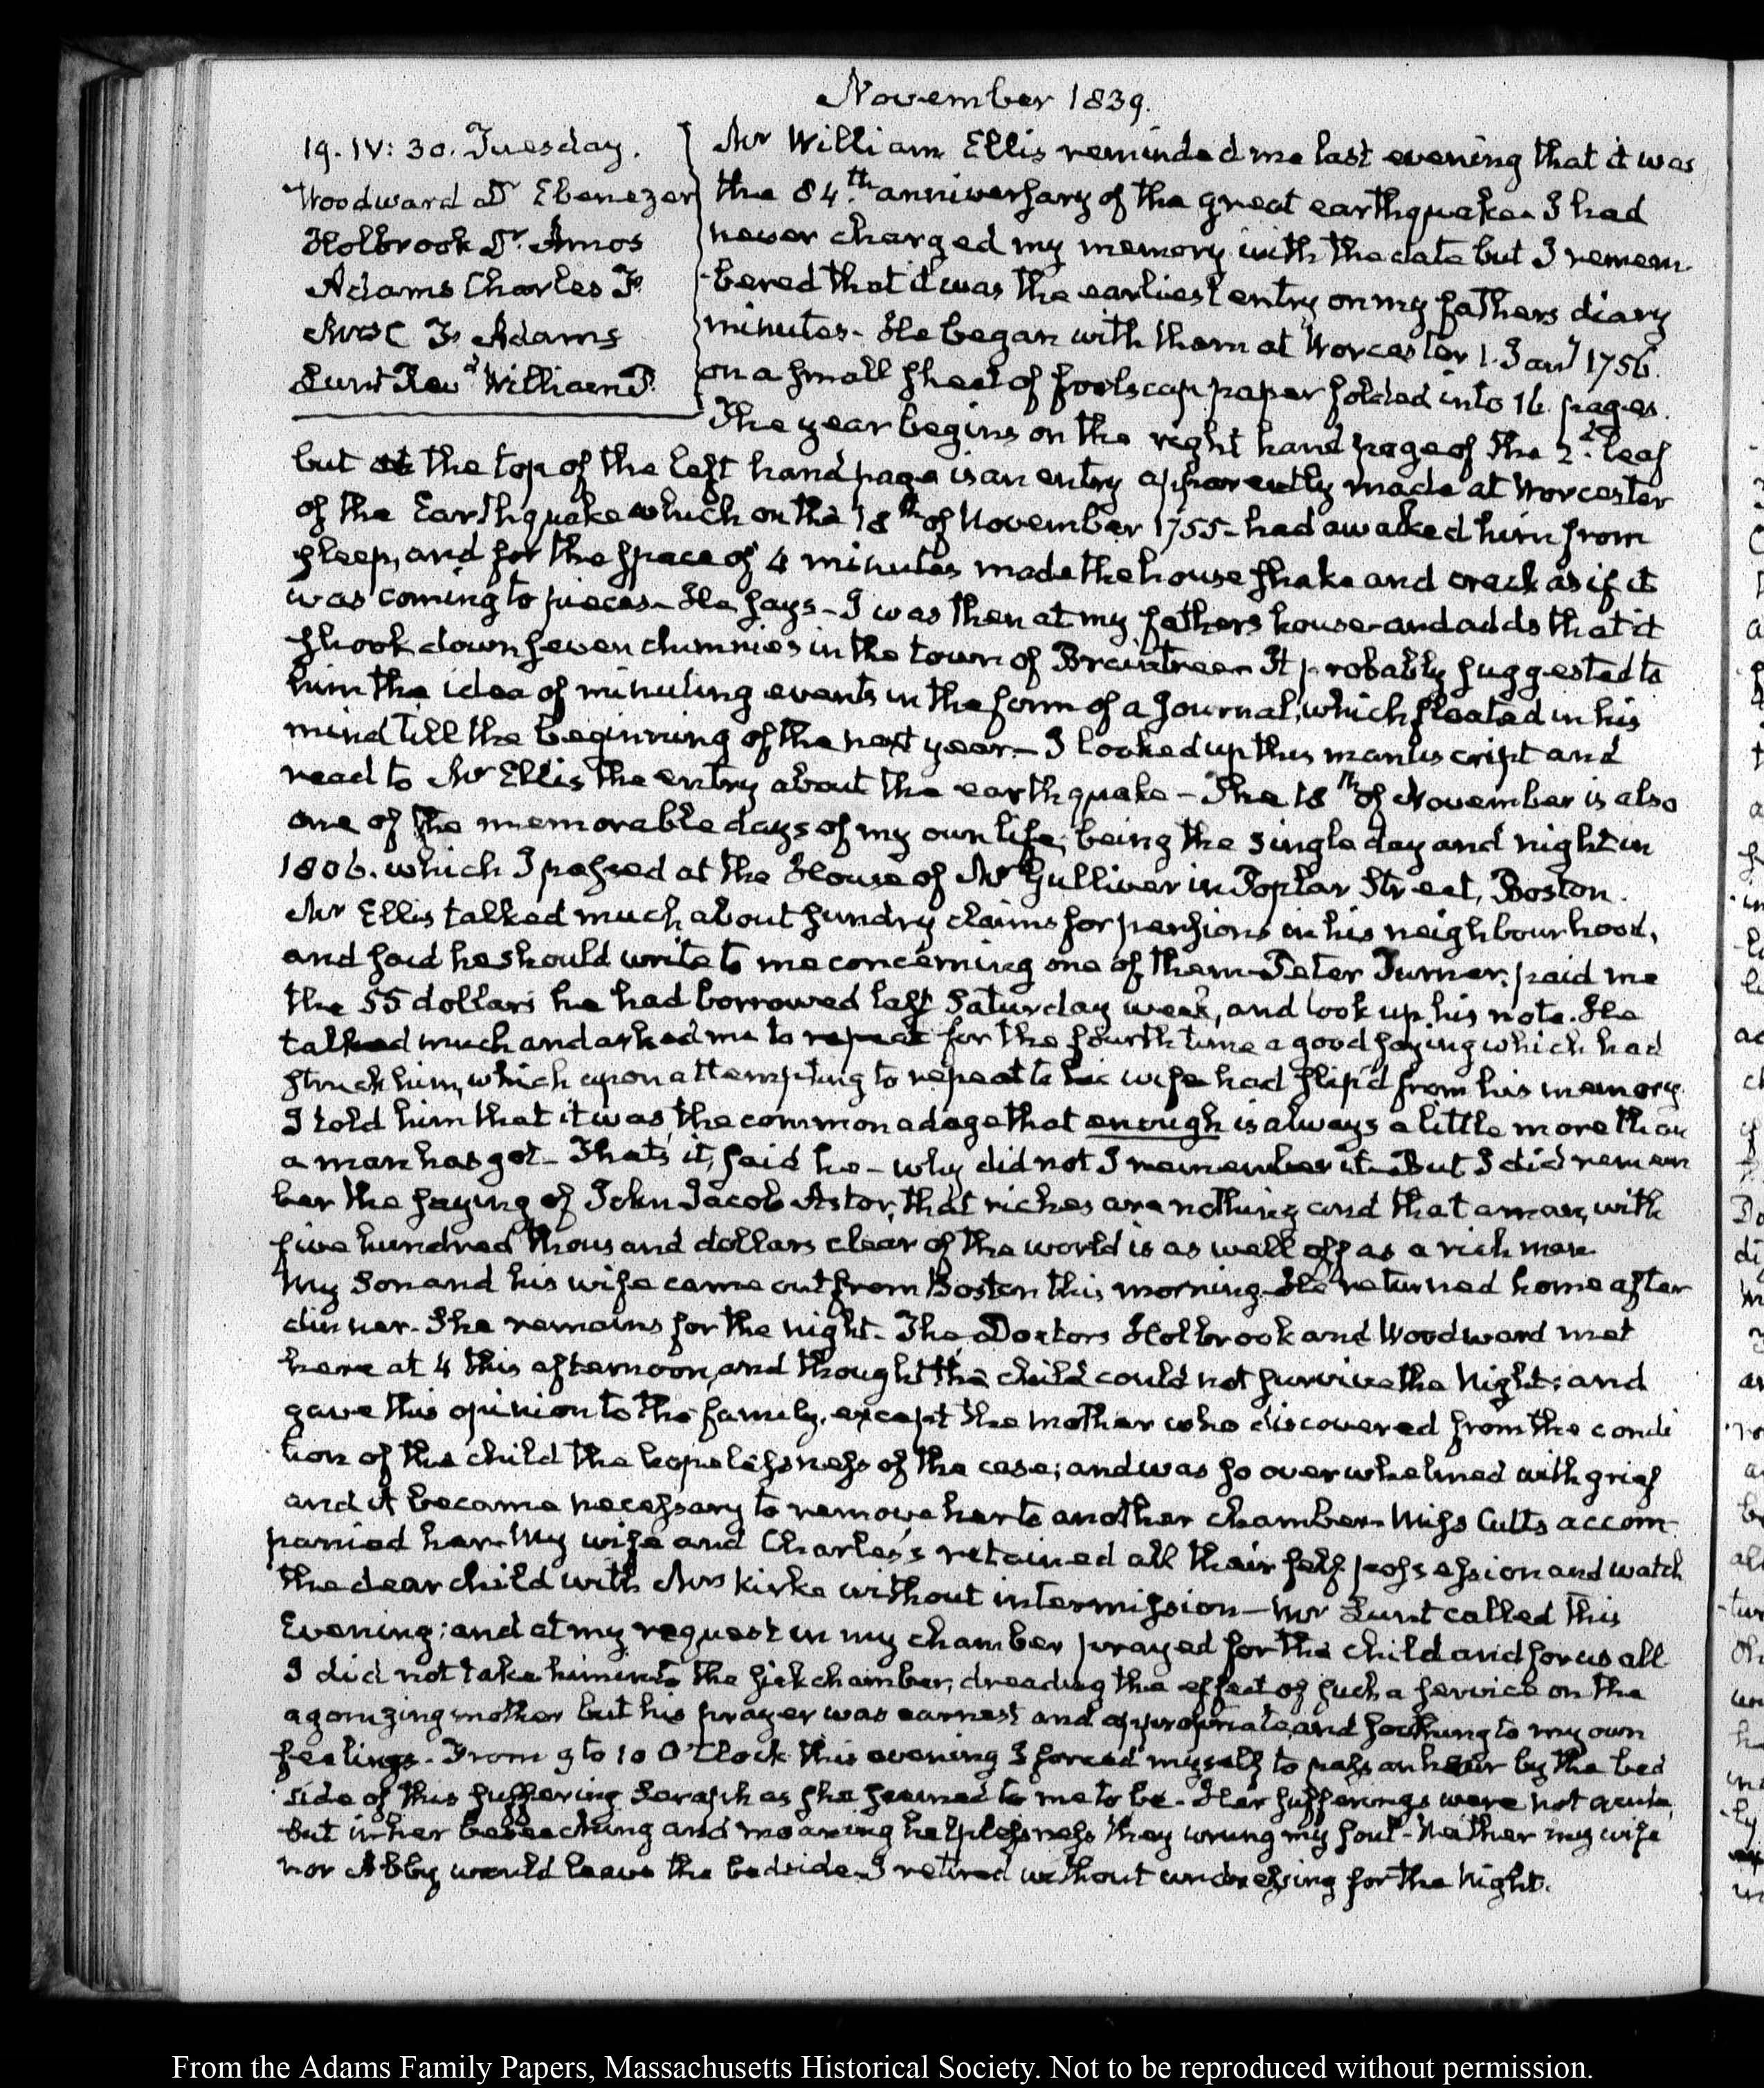 November 1839.
19. IV: 30. Tuesday.
Woodward Dr Ebenezer
Holbrook Dr. Amos
Adams Charles F.
Mrs C F. Adams
Lunt Revd William P.
Mr William Ellis reminded me last evening that it was
the 84th. anniversary of the great earthquake. I had
never charged my memory with the date but I remem-
bered that it was the earliest entry on my fathers diary
minutes. He began with them at Worcester 1. Jany 1756.
on a small sheet of foolscap paper folded into 16. pages.
The year begins on the right hand page of the 2d. leaf
but at the top of the left hand page is an entry apparently made at Worcester
of the Earthquake which on the 18th of November 1755- had awaked him from
sleep, and for the space of 4 minutes made the house shake and crack as if it
was coming to pieces- He says- I was then at my fathers house- and adds that it
shook down seven chimnies in the town of Braintree- It probably suggested to
him the idea of minuting events in the form of a Journal, which floated in his
mind till the beginning of the next year- I looked up this manuscript and
read to Mr Ellis the entry about the earthquake- The 18th of November is also
one of the memorable days of my own life; being the single day and night in
1806. which I passed at the House of Mr Gulliver in Poplar Street, Boston.
Mr Ellis talked much about sundry claims for pensions in his neighbourhood,
and said he should write to me concerning one of them- Peter Turner; paid me
the 55 dollars he had borrowed last Saturday week, and took up his note. He
talked much and asked me to repeat for the fourth time a good saying which had
struck him, which upon attempting to repeat to his wife had slip'd from his memory.
I told him that it was, the common adage that enough is always a little more than
a man has got- That's it, said he- why did not I remember it- But I did remem
ber the saying of John Jacob Astor, that riches are nothing and that a man, with
five hundred thousand dollars clear of the world is as well off as a rich man.
My Son and his wife came out from Boston this morning- He returned home after
dinner- She remains for the night. The Doctors Holbrook and Woodward met
here at 4 this afternoon, and thought the child could not survive the Night; and
gave this opinion to the family, except the mother who discovered from the condi
tion of the child the hopelessness of the case; and was so overwhelmed with grief
and it became necessary to remove her to another chamber- Miss Cutts accom-
panied her- My wife and Charles's retained all their self possession and watch
the dear child with Mrs Kirke without intermission- Mr Lunt called this
Evening; and at my request in my chamber prayed for the child and for us all
I did not take him into the sick chamber, dreading the effect of such a service on the
agonizing mother but his prayer was earnest and appropriate, and soothing to my own
feelings- From 9 to 10 O'Clock this evening I forced myself to pass an hour by the bed
side of this suffering Seraph as she seemed to me to be- Her sufferings were not acute,
but in her beseeching and moaning helplessness they wrung my soul- Neither my wife
nor Abby would leave the bedside- I retired without undressing for the Night.
From the Adams Family Papers, Massachusetts Historical Society. Not to be reproduced without permission.